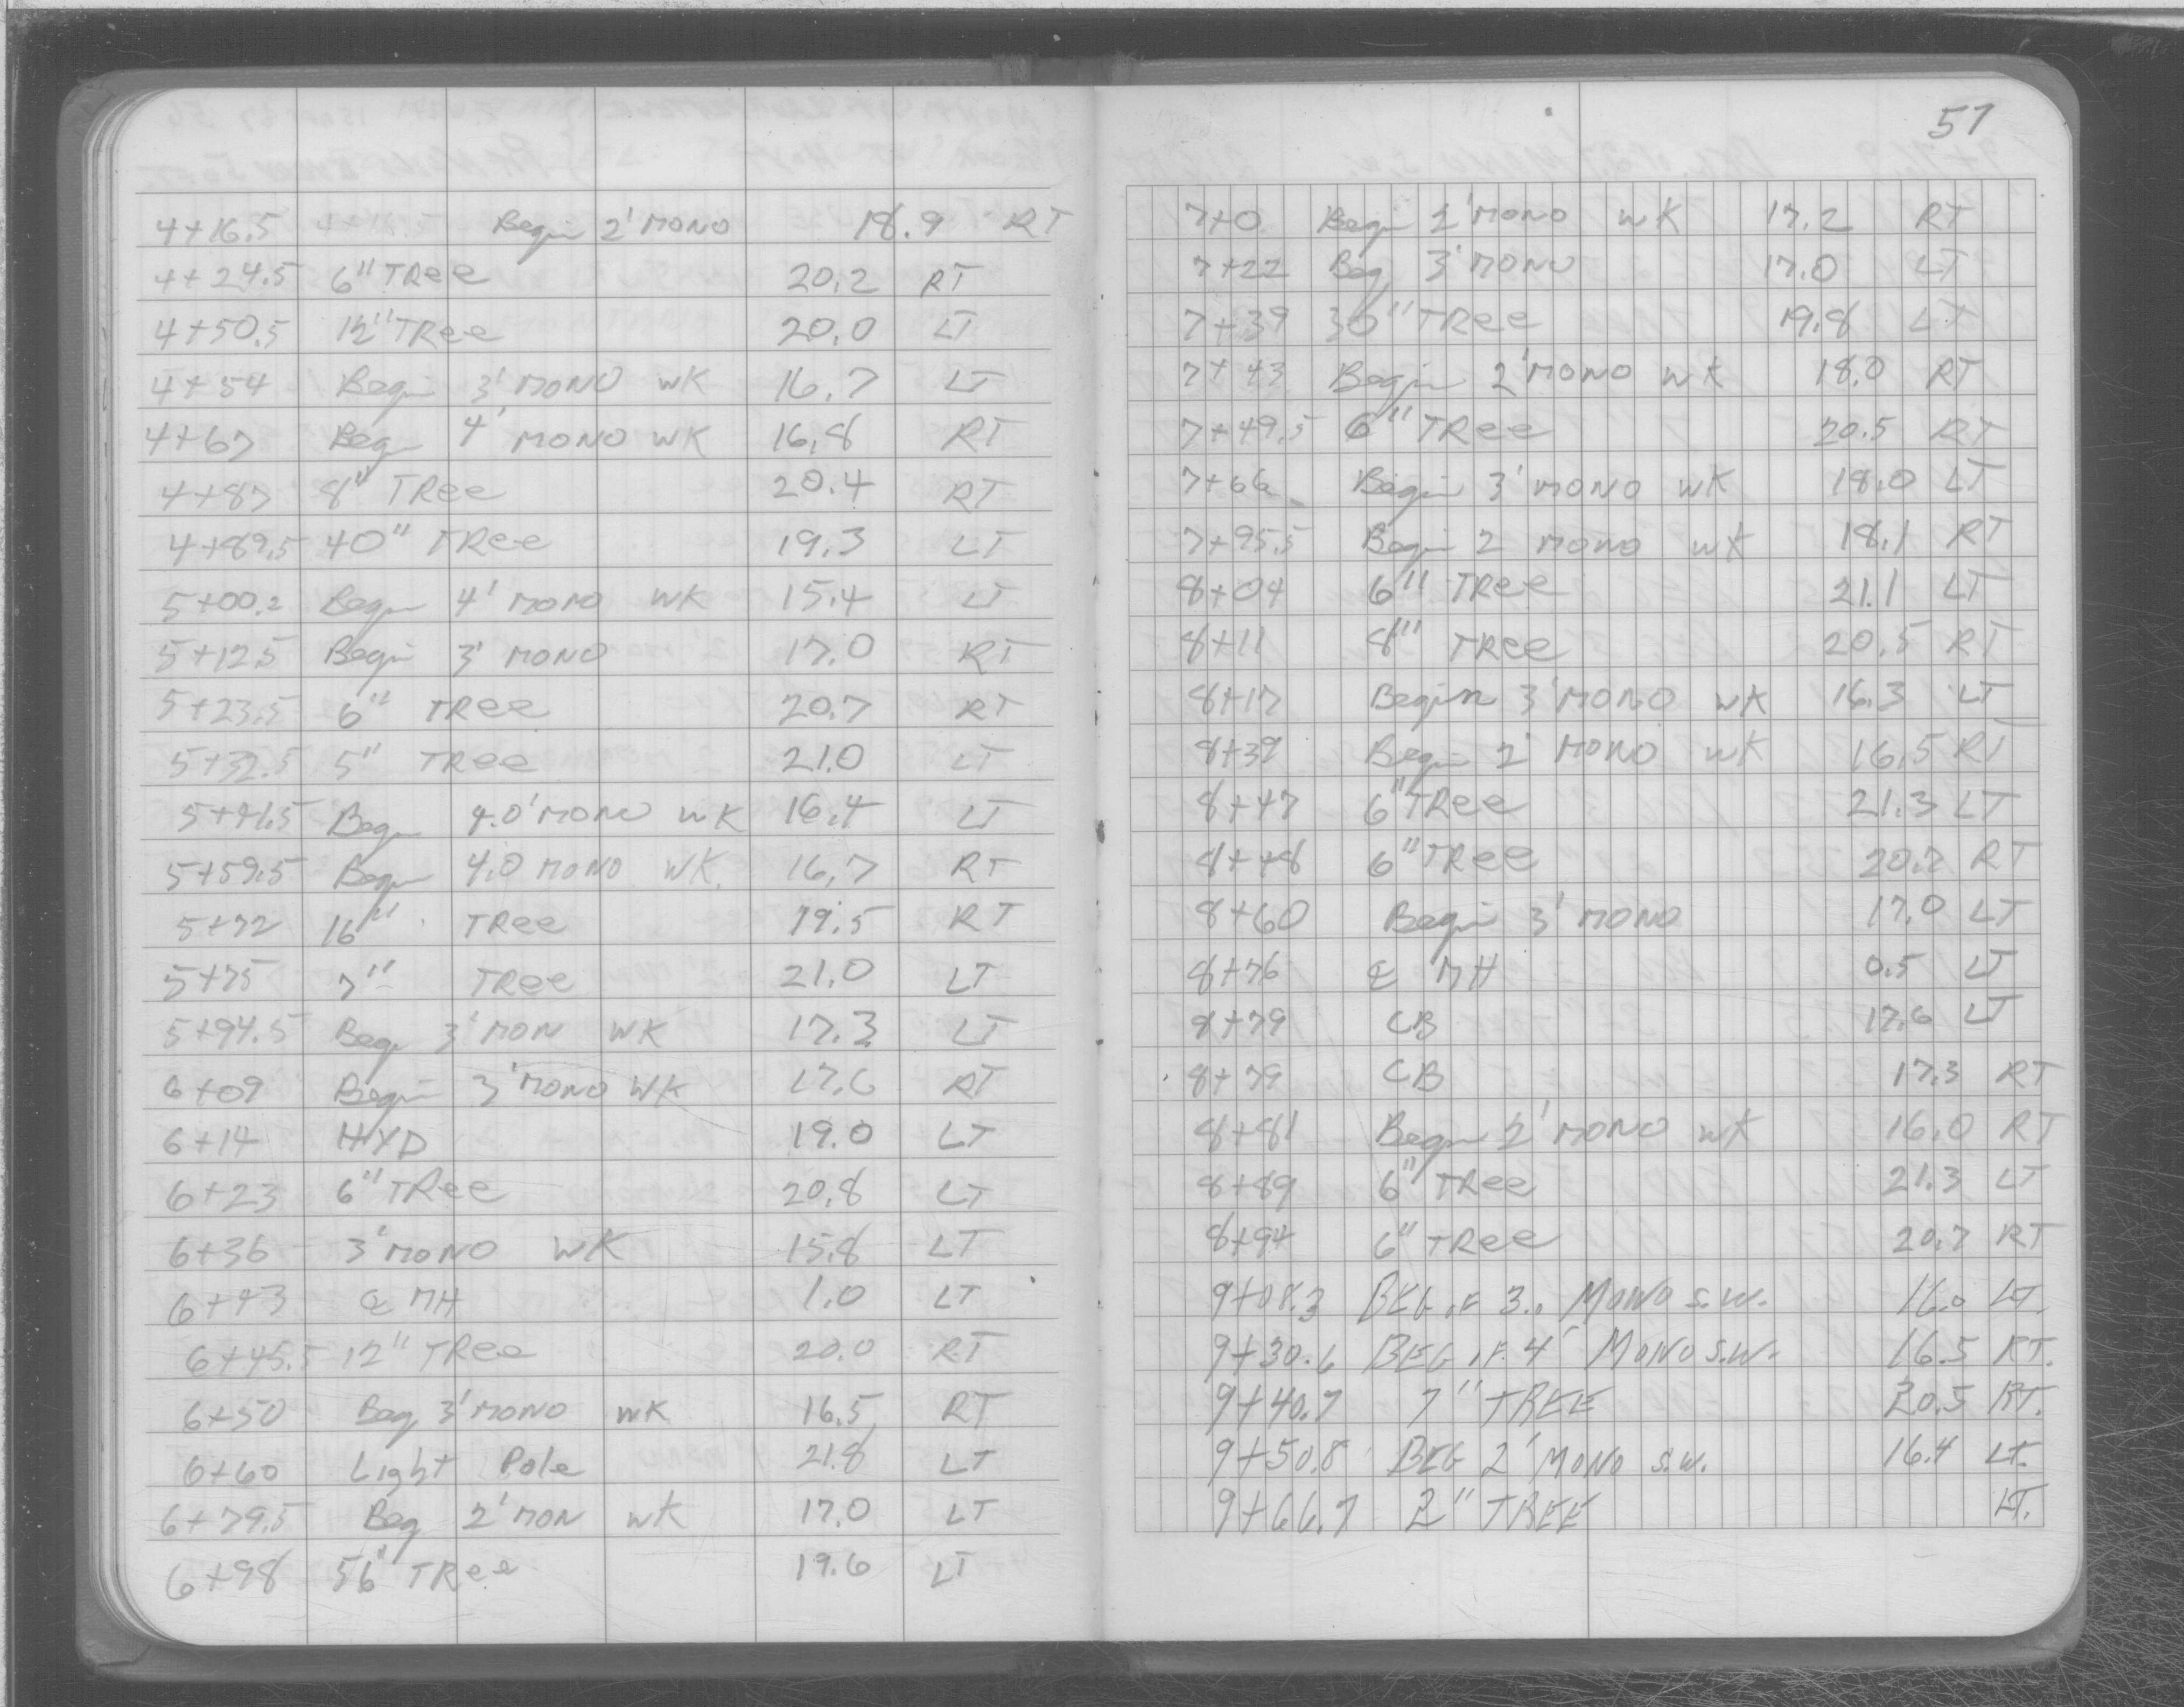 4+16.5 Begin 2' MONO 18.9 RT
4+24.5 6" TRee 20.2 RT
4+50.5 12" TRee 20.0 LT
4+54 Begin 3' MONO WK 16.7 LT
4+67 Begin 4' MONO WK 16.8 RT
4+87 8" TRee 20.4 RT
4+89.5 40" TRee 19.3 LT
5+00.2 Begin 4' MONO WK 15.4 LT
5+12.5 Begin 3' MONO 17.0 RT
5+23.5 6" TRee 20.7 RT
5+32.5 5" TRee 21.0 LT
5+41.5 Begin 4.0' MONO WK 16.4 LT
5+59.5 Begin 4.0 MONO WK. 16.7 RT
5+72 16" TRee 19.5 RT
5+75 7" TRee 21.0 LT
5+94.5 Beg 3' MON WK 17.3 LT
6+09 Begin 3' MONO WK 17.6 RT
6+14 HYD 19.0 LT
6+23 6" TRee 20.8 LT
6+36 3' MONO WK 15.8 LT
6+43 ℄ MH 1.0 LT
6+45.5 12" TRee 20.0 RT
6+50 Beg 3' MONO WK 16.5 RT
6+60 Light Pole 21.8 LT
6+79.5 Beg 2' MON WK 17.0 LT
6+98 56" TRee 19.6 LT
57
7+0 Begin 2' MONO WK 17.2 RT
7+22 Beg 3' MONO 17.0 LT
7+39 30" TRee 19.8 LT
7+43 Begin 2' MONO WK 18.0 RT
7+49.5 6" TRee 20.5 RT
7+66 Begin 3' MONO WK 18.0 LT
7+95.5 Begin 2 MONO WK 18.1 RT
8+04 6" TRee 21.1 LT
8+11 8" TRee 20.5 RT
8+17 Begin 3' MONO WK 16.3 LT
8+39 Begin 2' MONO WK 16.5 RT
8+47 6" TRee 21.3 LT
8+48 6" TRee 20.2 RT
8+60 Begin 3' MONO 17.0 LT
8+76 ℄ MH 0.5 LT
8+79 CB 17.6 LT
8+79 CB 17.3 RT
8+81 Begin 2' MONO WK 16.0 RT
8+89 6" TRee 21.3 LT
8+94 6" TRee 20.7 RT
9+08.3 BEG. OF 3.0 MONO S.W. 16.0 LT.
9+30.6 BEG. OF 4' MONO S.W. 16.5 RT.
9+40.7 7" TREE 20.5 RT.
9+50.8 BEG 2' MONO S.W. 16.4 LT.
9+66.7 2" TREE LT.